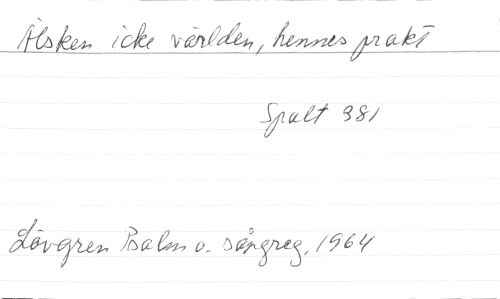 Älsken icke världen, hennes prakt
Spalt 381
Lövgren Psalm o. sångreg. 1964